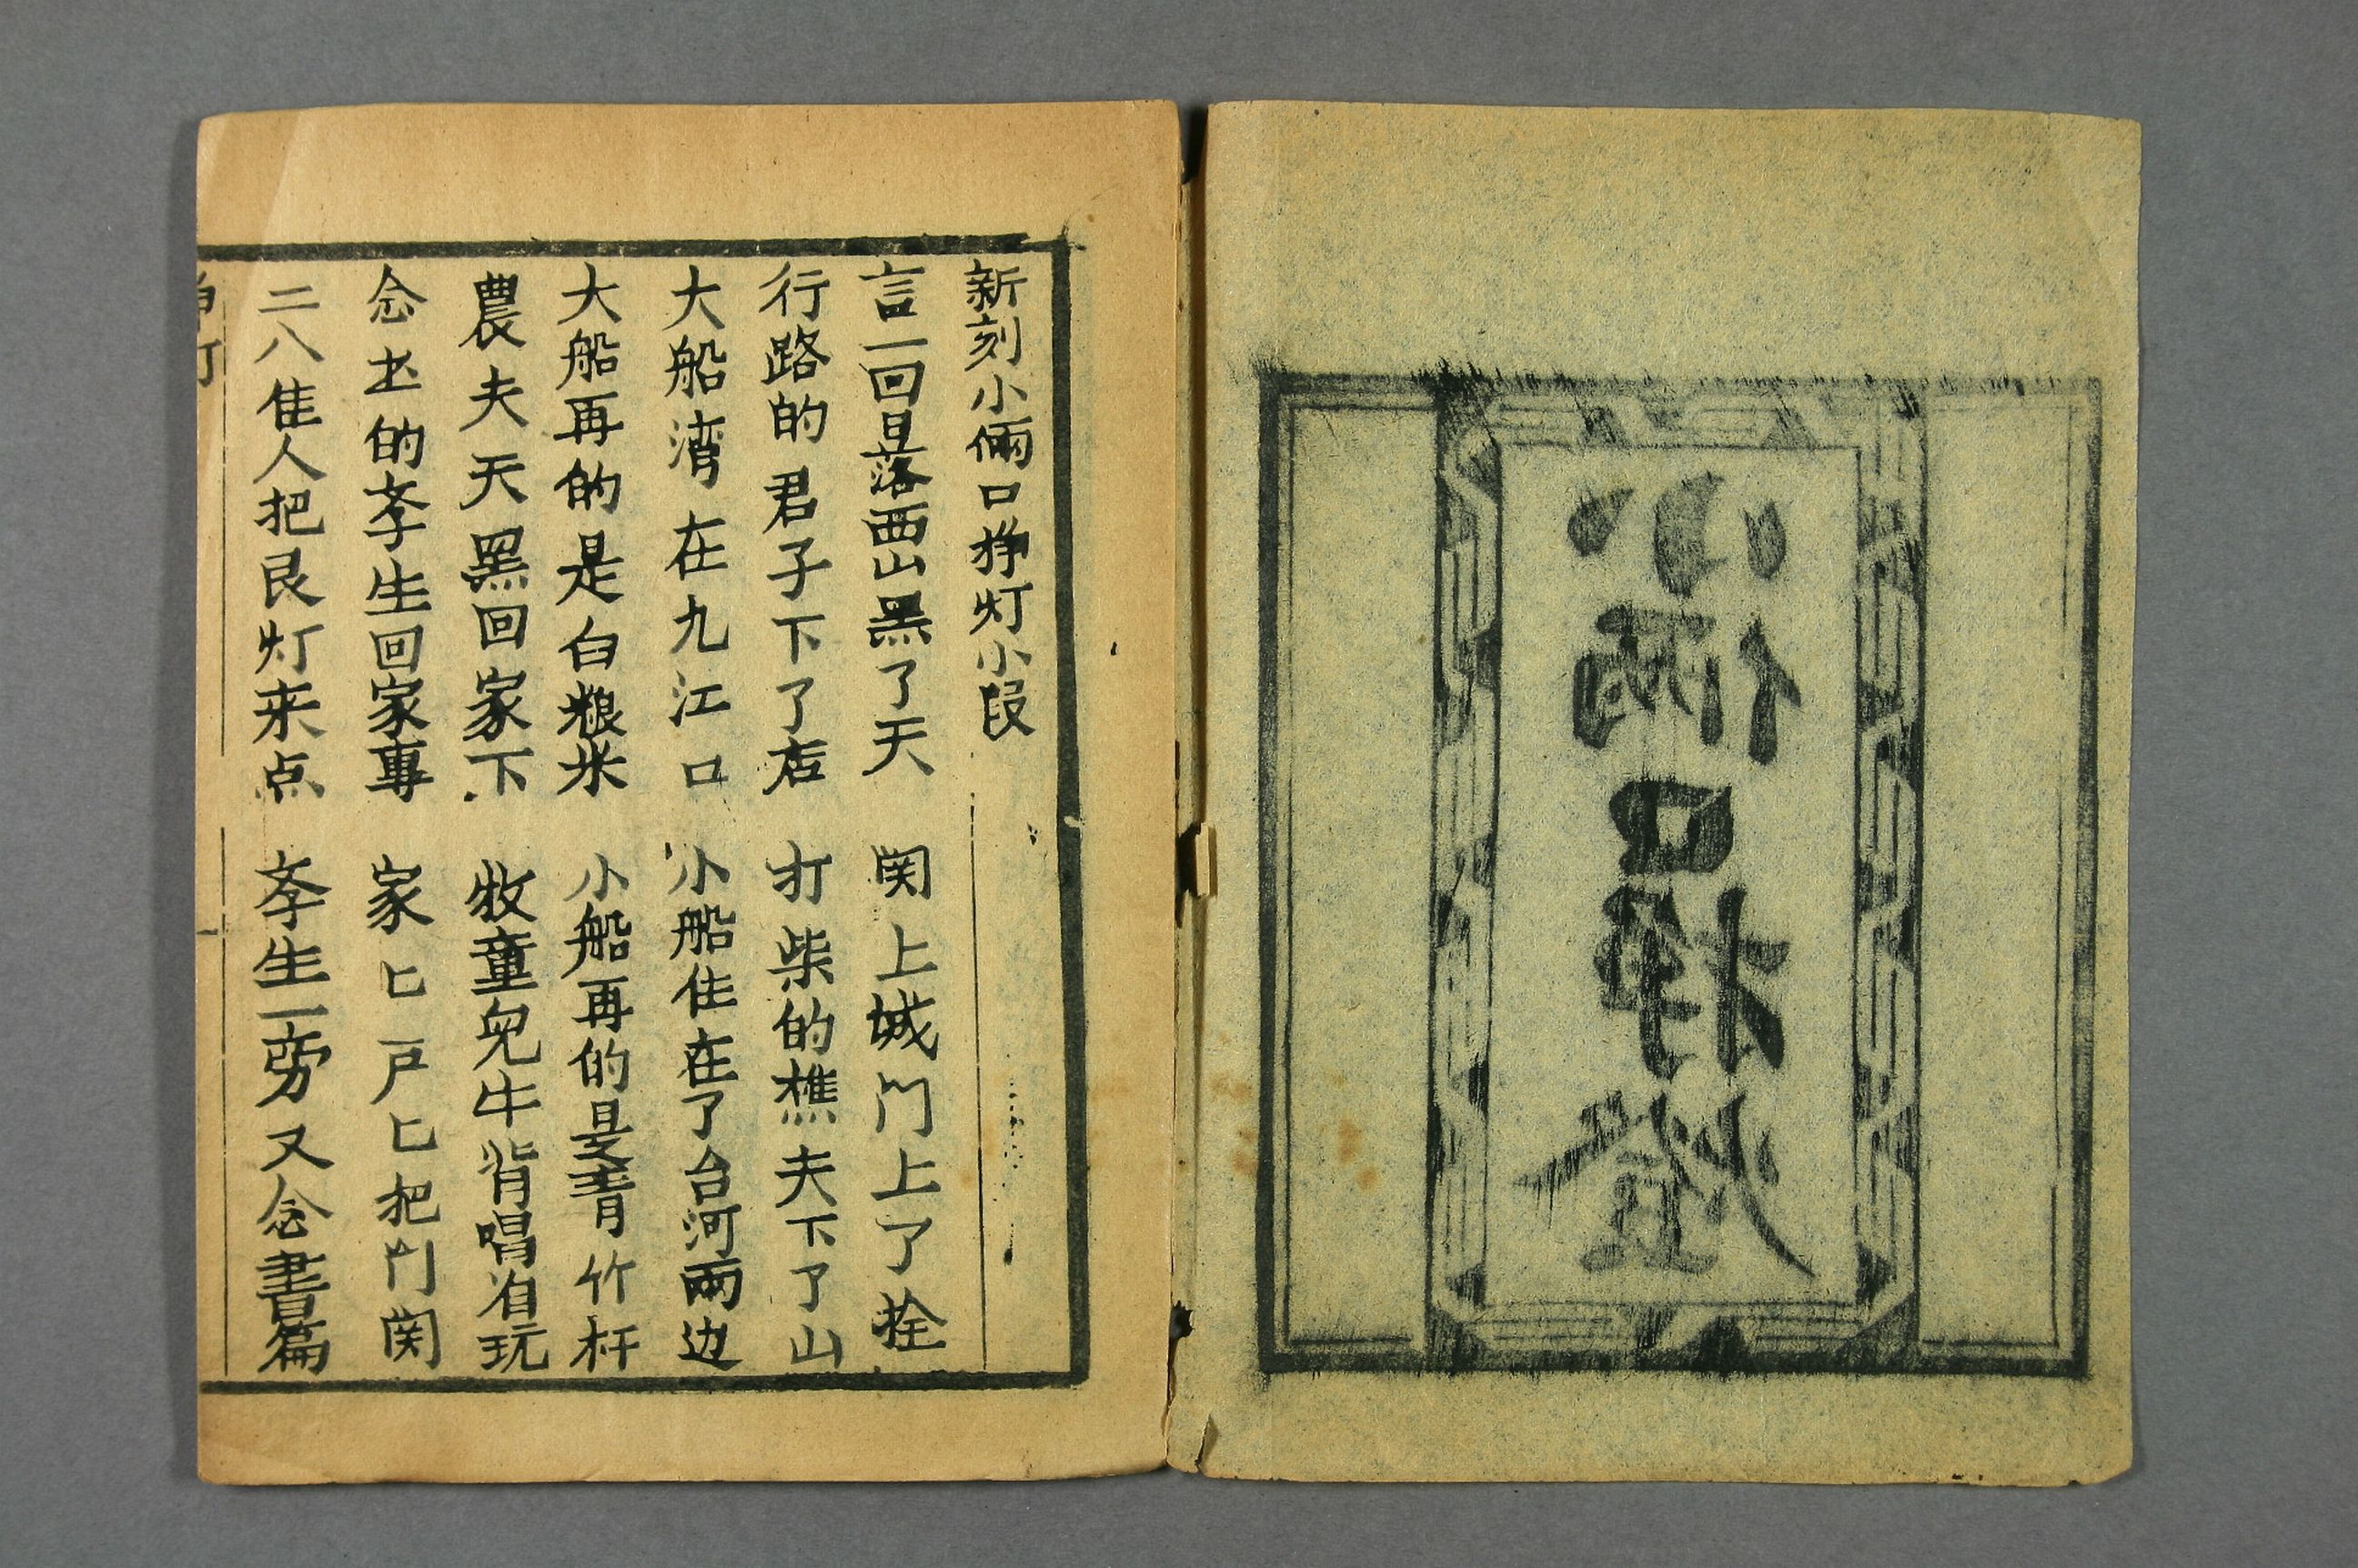 小倆口挣燈
新刻小倆口挣灯小段
言一回日落西山黑了天 関上城门上了拴
行路的君子下了店 打柴的樵夫下了山
大船湾在九江口 小船住在了台河兩边
大船再的是白粮米 小船再的是青竹杆
農夫天黑回家下 牧童兒牛背唱着玩
念书的斈生回家專 家匕戸匕把门関
二八佳人把艮灯来点 斈生一旁又念書篇